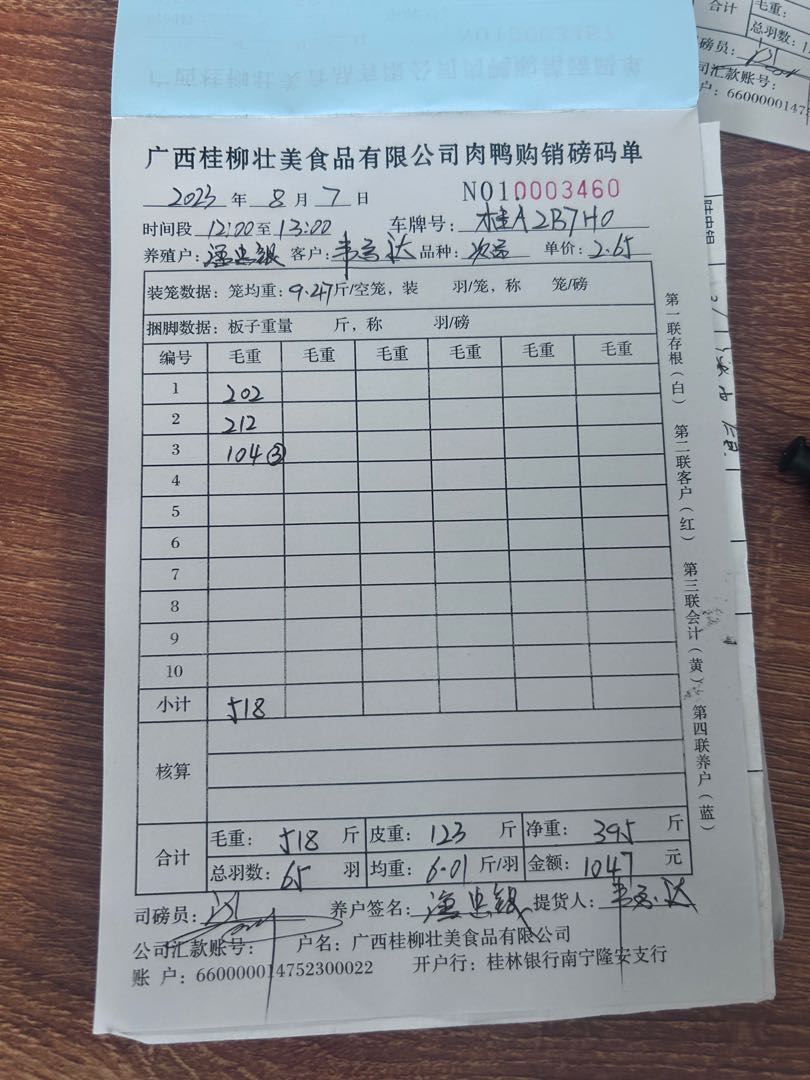 合计
毛重：
总羽数：
磅员：
司汇款账号：
户：6600000147
广西桂柳壮美食品有限公司肉鸭购销磅码单
2023 年 8 月 7 日 NO10003460
时间段 12:00至13:00 车牌号：桂A2B7H0
养殖户：潘忠银 客户：韦京达 品种：次品 单价：2.65
装笼数据：笼均重：9.47斤/空笼，装 羽/笼，称 笼/磅
捆脚数据：板子重量 斤，称 羽/磅
编号 毛重 毛重 毛重 毛重 毛重 毛重
1 202
2 212
3 104③
4
5
6
7
8
9
10
小计 518
核算
合计 毛重：518 斤 皮重：123 斤 净重：395 斤
总羽数：65 羽 均重：6.01 斤/羽 金额：1047 元
司磅员：
养户签名：潘忠银 提货人：韦京达
公司汇款账号： 户名：广西桂柳壮美食品有限公司
账 户：660000014752300022 开户行：桂林银行南宁隆安支行
第一联存根（白） 第二联客户（红） 第三联会计（黄） 第四联养户（蓝）